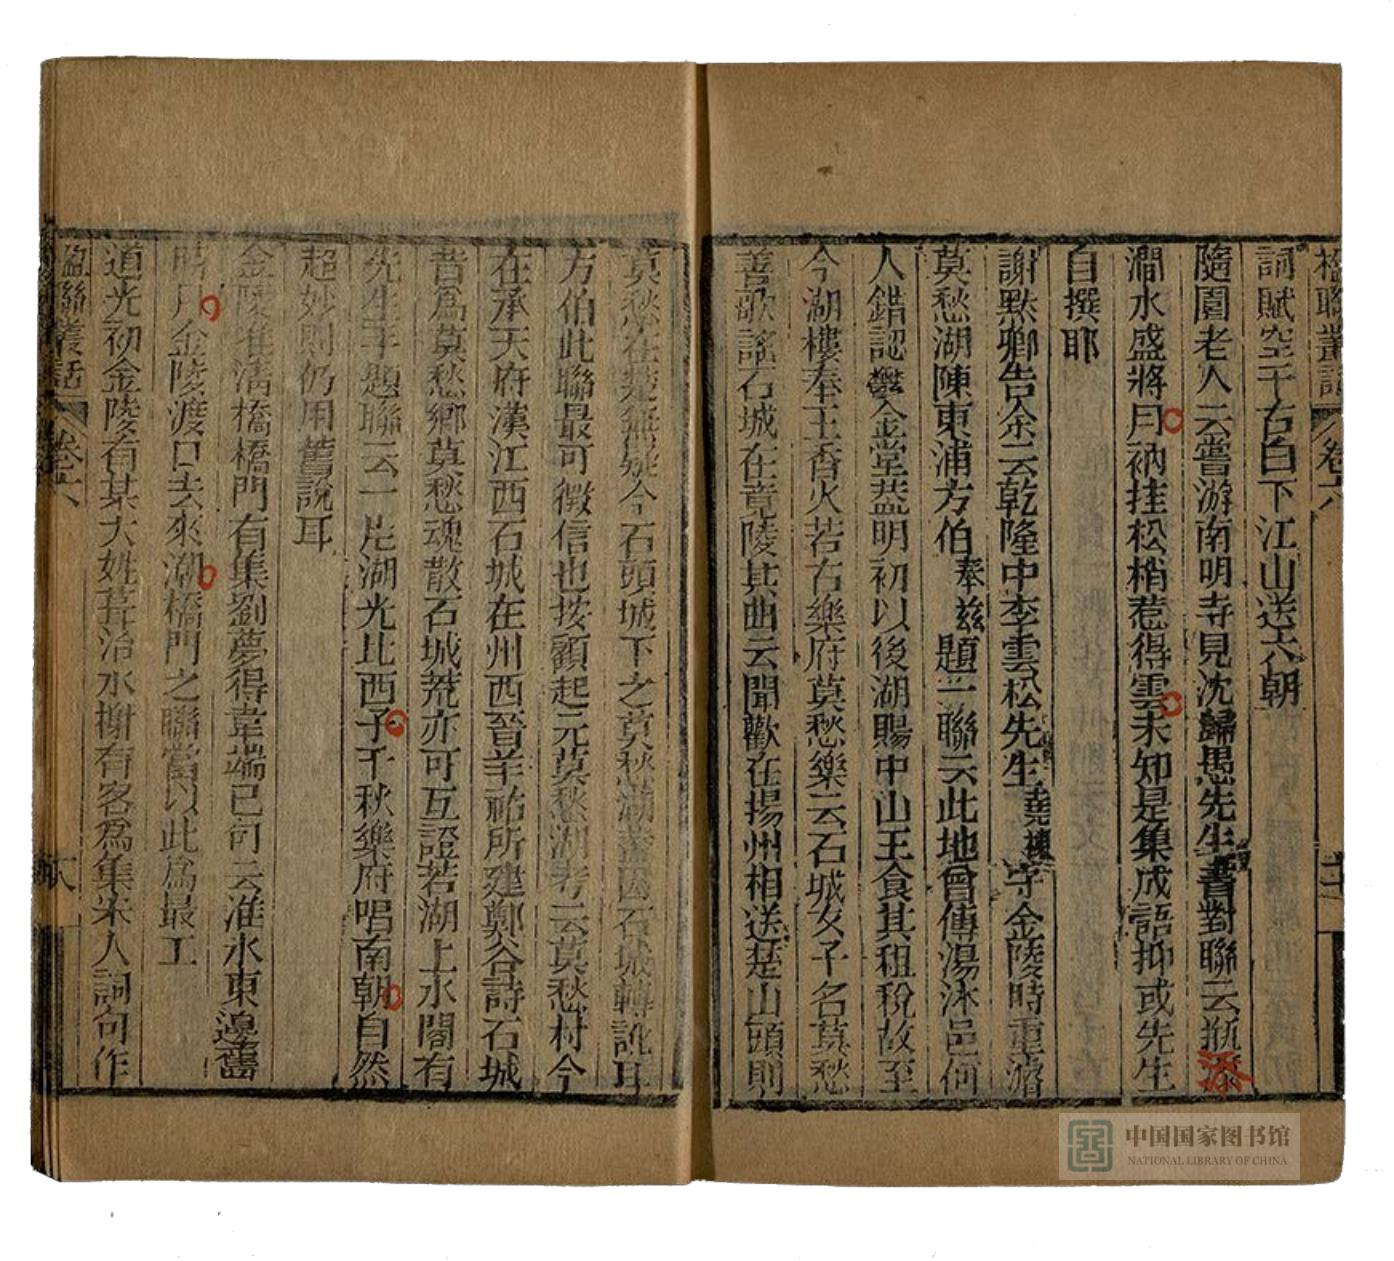 楹聯叢話 卷六
詞賦空千古白下江山送六朝
隨園老人云嘗游南明寺見沈歸愚先生書對聯云瓶添
澗水盛將月衲挂松梢惹得雲未知是集成語抑或先生
自撰耶
謝默卿告余云乾隆中李雲松先生堯棟守金陵時重濬
莫愁湖陳東浦方伯奉兹題一聯云此地曾傳湯沐邑何
人錯認鬱金堂葢明初以後湖賜中山王食其租稅故至
今湖樓奉王香火若古樂府莫愁樂云石城女子名莫愁
善歌謠石城在竟陵其曲云聞歡在揚州相送楚山頭則
莫愁在楚無疑今石頭城下之莫愁湖葢因石城轉訛耳
方伯此聯最可徵信也按顧起元莫愁湖考云莫愁村今
在承天府漢江西石城在州西晉羊祜所建鄭谷詩石城
昔爲莫愁鄉莫愁魂散石城荒亦可互證若湖上水閣有
先生手題聯云一片湖光比西子千秋樂府唱南朝自然
超妙則仍用舊說耳
金陵淮清橋橋門有集劉夢得韋端己句云淮水東邊舊
時月金陵渡口去來潮橋門之聯當以此爲最工
道光初金陵有某大姓葺治水榭有客爲集宋人詞句作
楹聯叢話 卷六 十八